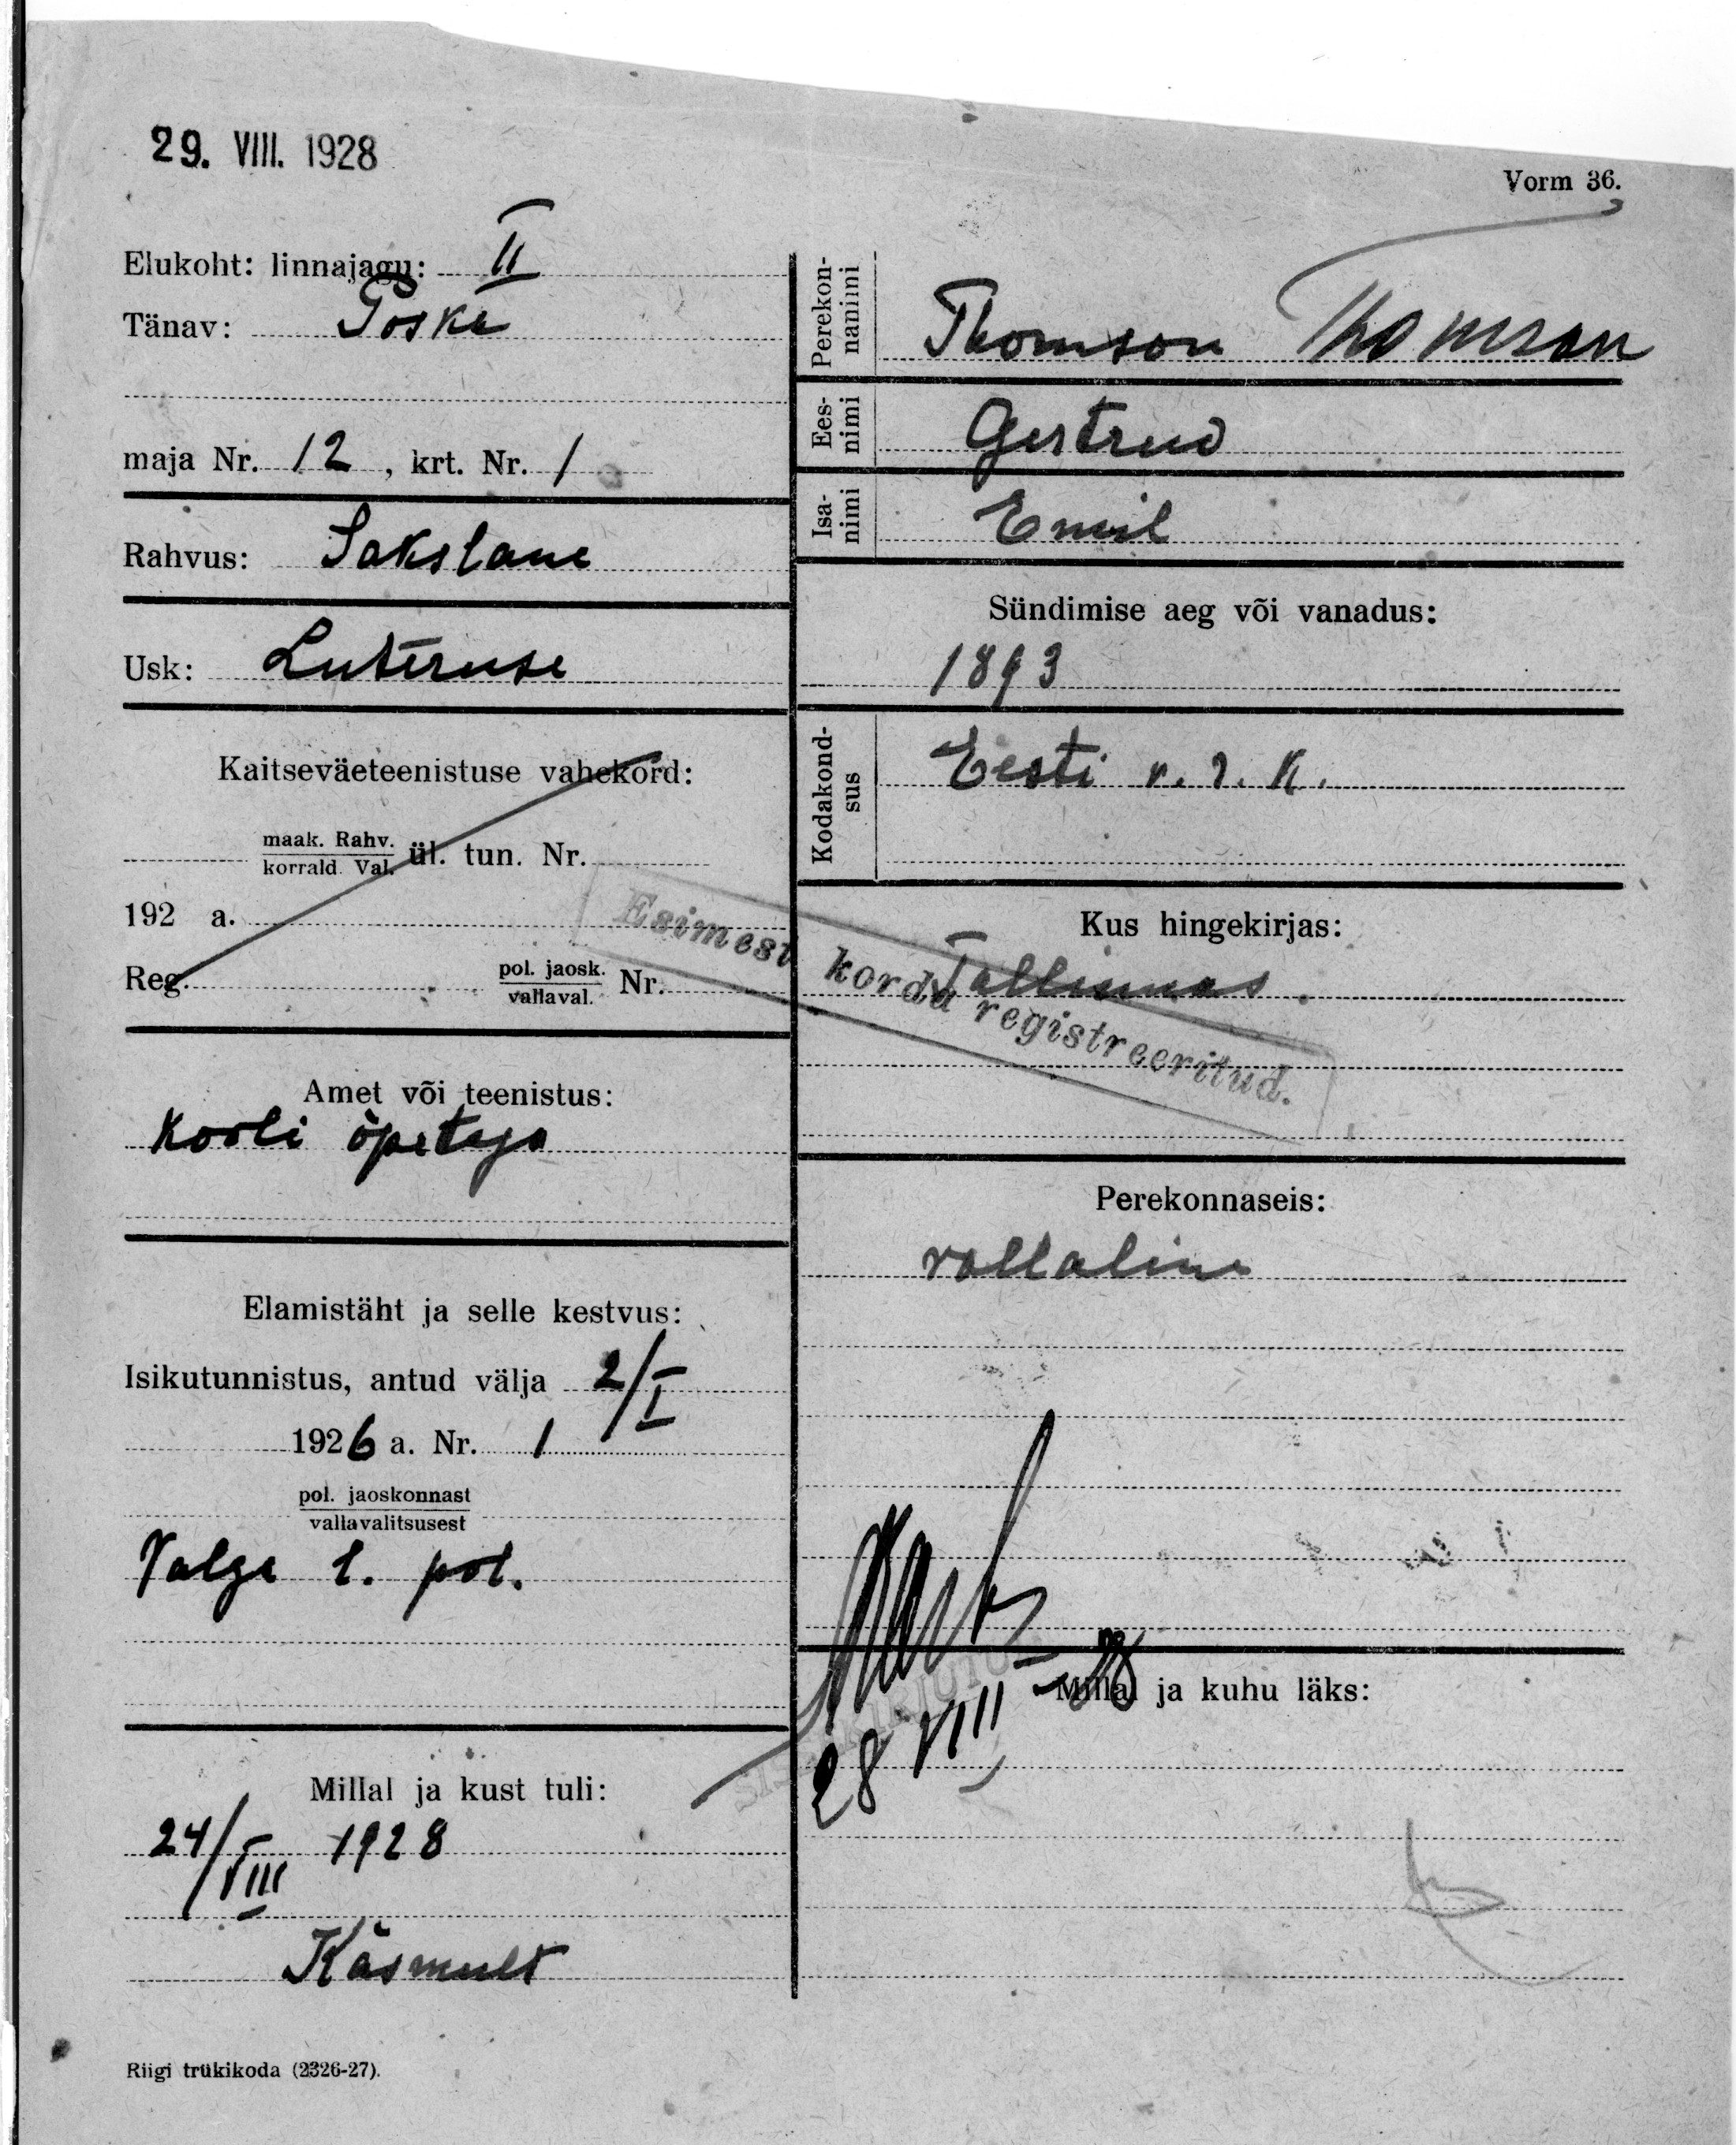 29. VIII. 1928
Vorm 36.
Elukoht: linnajagu: II
Tänav: Poska
maja Nr. 12, krt. Nr. 1
Rahvus: Sakslane
Usk: Luteruse
Kaitseväeteenistuse vahekord:
maak. Rahv.
korrald. Val. ül. tun. Nr.
192 a.
Reg. pol. jaosk.
vallaval. Nr.
Amet või teenistus:
Kooli õpetaja
Elamistäht ja selle kestvus:
Isikutunnistus, antud välja 2/I
1926 a. Nr. 1
pol. jaoskonnast
vallavalitsusest
Valga l. pol.
Millal ja kust tuli:
24/VIII 1928
Käsmult
Riigi trükikoda (2326-27).
Perekon-
nanimi
Thomson Thomson
Ees-
nimi
Gertrud
Isa-
nimi
Emil
Sündimise aeg või vanadus:
1893
Kodakond-
sus
Eesti v. r. k.
Kus hingekirjas:
Tallinnas.
Esimest korda registreeritud.
Perekonnaseis:
vallaline
28 VIII 28
Millal ja kuhu läks: